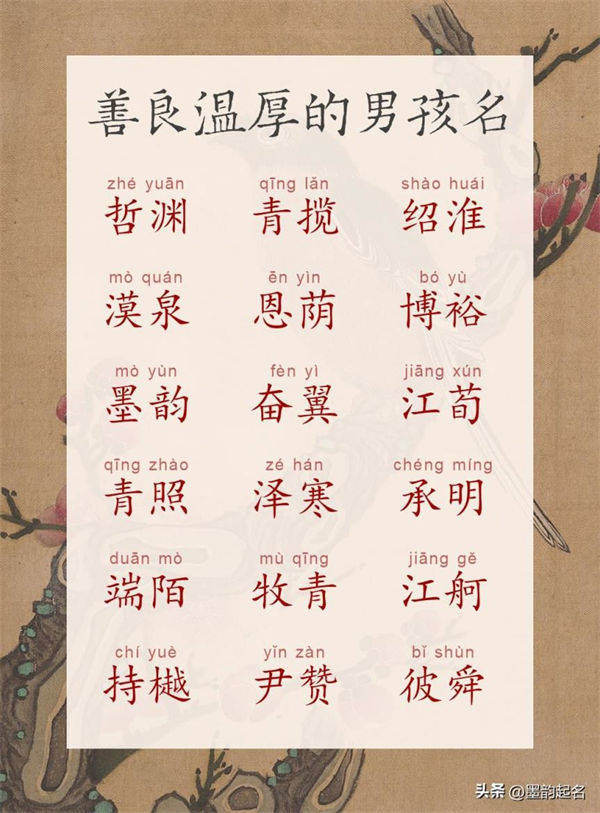 善良温厚的男孩名
zhé yuān qīng lǎn shào huái
哲渊 青揽 绍淮
mò quán ēn yìn bó yù
漠泉 恩荫 博裕
mò yùn fèn yì jiāng xún
墨韵 奋翼 江荀
qīng zhào zé hán chéng míng
青照 泽寒 承明
duān mò mù qīng jiāng gě
端陌 牧青 江舸
chí yuè yǐn zàn bǐ shùn
持樾 尹赞 彼舜
头条 @墨韵起名